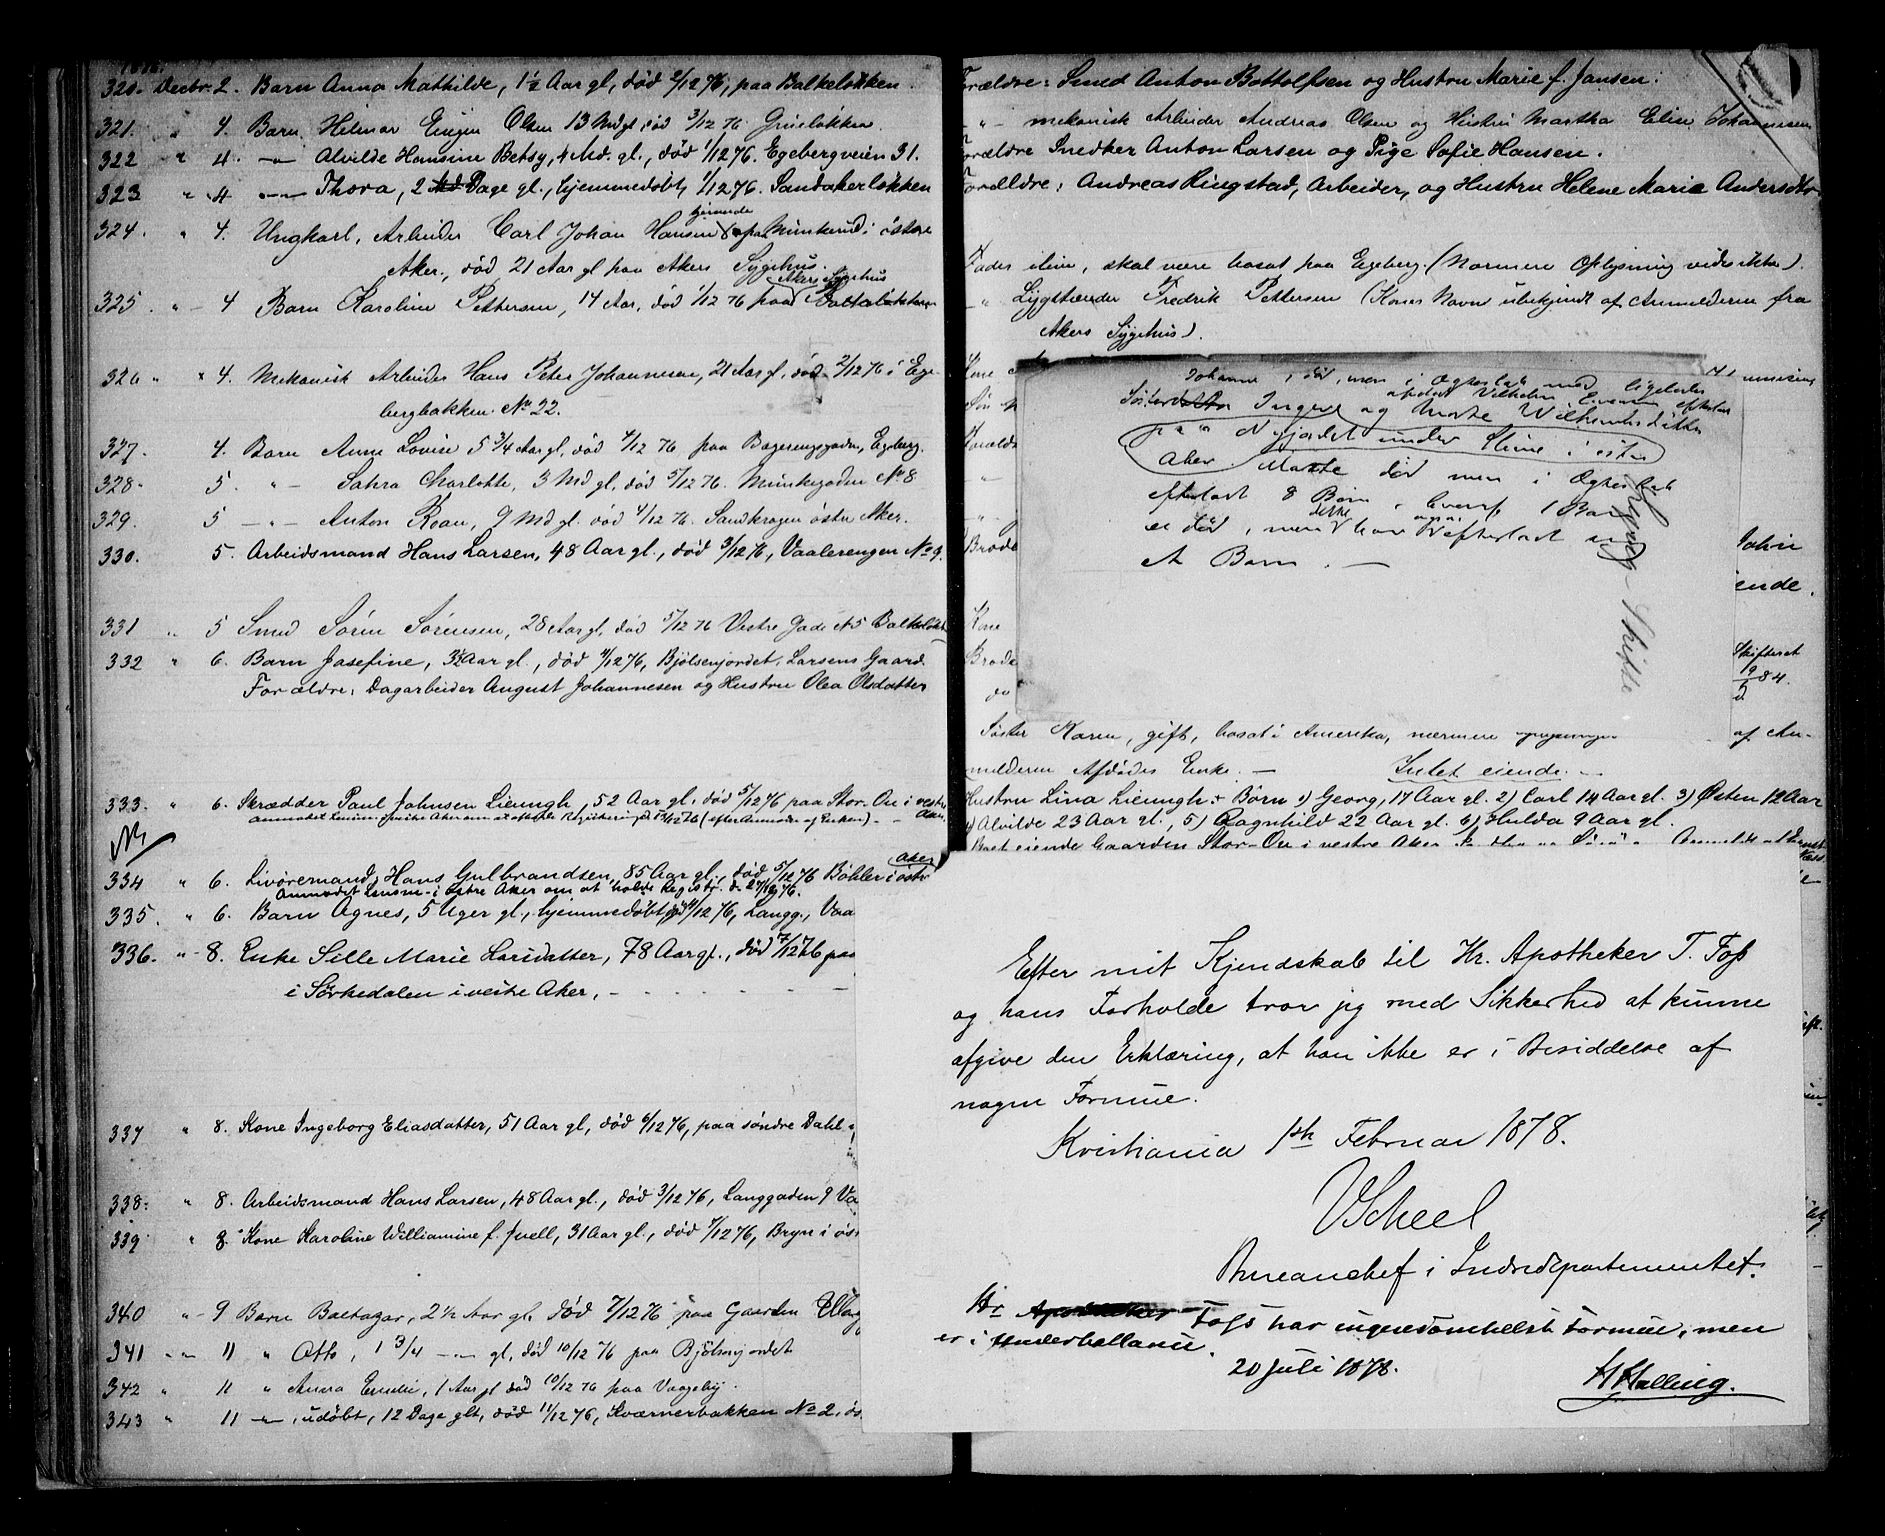 1876.
320. Decbr. 2. Barn Anna Mathilde, 1½ Aar gl, død 2/12 76, paa Balkeløkken.
321. " 4. Barn Helmer Eugen Olsen 13 Md gl, død 3/12 76 Grueløkken
322 " 4. -"- Alvilde Hansine Betsy, 4 Md. gl., død 1/12 76. Egebergveien 31.
323 " 4 -"- Thora, 2 Dage gl., hjemmedøbt, 1/12 76. Sandakerløkken
324. " 4. Ungkarl, Arbeider Carl Johan Hansen tjenende paa Munkerud i østre
Aker, død 21 Aar gl paa Akers Sygehus.
325. " - 4 Barn Karoline Pettersen, 14 Aar, død 1/12 76 paa Akers Sygehus
326 " " 4. Mekanisk Arbeider Hans Peter Johannesen, 21 Aar gl, død 2/12 76 i Ege-
bergbakken No 22.
327. 4. Barn Anne Lovise 5 3/4 Aar gl, død 4/12 76 paa Egeberg.
328. 5. -"- Sahra Charlotte, 3 Md gl, død 5/12 76. Munkegaden No 8
329. 5 -"- Anton Roan, 9 Md gl. død 4/12 76. Sandkrogen østre Aker.
330. 5. Arbeidsmand Hans Larsen, 48 Aar gl., død 3/12 76, Vaalerengen No 9.
331 " 5 Smed Søren Sørensen, 28 Aar gl, død 5/12 76 Vestre Gade No 5 Balkeløkk
332 " 6. Barn Josefine, 3½ Aar gl., død 4/12 76, Bjølsenjordet, Larsens Gaard.
Forældre: Dagarbeider August Johannesen og Hustru Olea Olsdatter
333. " 6. Skrædder Paul Johnsen Lieungh, 52 Aar gl. død 5/12 76 paa Stor-Ou i vestre
Aker.
334 " 6. Livøremand, Hans Gulbrandsen, 85 Aar gl, død 5/12 76 Bøhler i østr Aker
Anmodet Lensm. i østre Aker om at holde Registr. d. 27/12 76.
335. " 6. Barn Agnes, 5 Uger gl., hjemmedøbt, død 4/12 76, Langg., Vaa
336. " - 8. Enke Sille Marie Larsdatter, 78 Aar gl., død 7/12 76 paa
i Sørkedalen i vestre Aker, -
337 " 8. Kone Ingeborg Eliasdatter, 51 Aar gl, død 6/12 76, paa søndre Dahl
338. " 8. Arbeidsmand Hans Larsen, 48 Aar gl., død 3/12 76, Langgaden 9 Va
339 " 8. Kone Karoline Williamine f. Juell, 31 Aar gl., død 7/12 76, Bryn i øs
340 " - 9 Barn Baltazar, 2½ Aar gl, død 7/12 76 paa Gaarden
341 - " 11 " Otto, 1 3/4 -"- gl, død 10/12 76 paa Bjølsenjordet
342 " 11 " Anna Emilie, 1 Aar gl død 10/12 76 paa Vaageby.
343 " 11 -"-, udøbt, 12 Dage glt, død 11/12 76, Kværnerbakken No 2. øs
Forældre: Smed Anton Bottolfsen og Hustru Marie f. Jansen.
-"- mekanisk Arbeider Andreas Olsen og Hustru Martha Elise Johannesen
Forældre Snedker Anton Larsen og Pige Sofie Hansen.
Forældre: Andreas Ringstad, Arbeider, og Hustru Helene Marie Andersdtr
Fader ilive, skal være bosat paa Egeberg. (Nærmere Oplysning vides ikke).
-"- Lygttænder Fredrik Pettersen (Konens Navn ubekjendt af Anmelderen fra
Akers Sygehus).
Kone
Johanne, død, men i Ægteskab med ligeledes
afdøde Vilhelm Evensen efterladt
Søster Ingeb og Marte Wilhelmsdatter
paa Nyjordet under Skine i østre
Aker Marte død men i Ægteskab
efterladt 8 Børn, hvoraf 1 Barn
er død, men dette har også efterladt sig
4 Børn. -
Skifte
Brodr
John
ende.
Kone
Brode
Skifteret
9/5 84.
Søster Karen, gift, bosat i Amerika, nærmere af An-
melderen Afdødes Enke. - Intet eiende. -
Hustru Lina Lieungh. + Børn 1) Georg, 17 Aar gl. 2) Carl 14 Aar gl. 3) Østen 12 Aar
4) Alvilde 23 Aar gl., 5) Ragnhild 22 Aar gl. 6) Hulda 9 Aar gl.
Boet eiende Gaarden Stor-Ou i vestre Aker
Efter mit Kjendskab til Hr. Apotheker T. Foss
og hans Forholde tror jeg med Sikkerhed at kunne
afgive den Erklæring, at han ikke er i Besiddelse af
nogen Formue.
Kristiania 1ste Februar 1878.
VScheel
Bureauchef i Indredepartementet.
Hr Apotheker Foss har ingensomhelst Formue, men
er i Underballance.
20 Juli 1878.
H Halling.